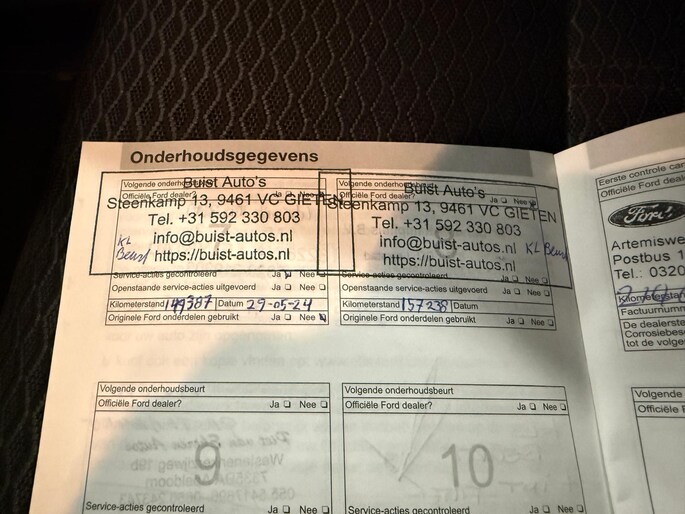 Onderhoudsgegevens
Volgende onderhoudsbeurt
Officiële Ford dealer? Ja Nee
Buist Auto's
Steenkamp 13, 9461 VC GIETEN
Tel. +31 592 330 803
info@buist-autos.nl
https://buist-autos.nl
KL
Beurt
Service-acties gecontroleerd Ja Nee
Openstaande service-acties uitgevoerd
Kilometerstand 149387 Datum 29-05-24
Originele Ford onderdelen gebruikt Ja Nee
Volgende
Officiële Ford dealer? Ja Nee
Buist Auto's
Steenkamp 13, 9461 VC GIETEN
Tel. +31 592 330 803
info@buist-autos.nl
https://buist-autos.nl
KL Beurt
Service-acties gecontroleerd Ja Nee
Openstaande service-acties uitgevoerd
Kilometerstand 157238 Datum
Originele Ford onderdelen gebruikt Ja Nee
Volgende onderhoudsbeurt
Officiële Ford dealer? Ja Nee
9
Service-acties gecontroleerd Ja Nee
Volgende onderhoudsbeurt
Officiële Ford dealer? Ja Nee
10
Service-acties gecontroleerd Ja Nee
Eerste controle car
Officiële Ford deal
Ford
Artemiswe
Postbus 1
Tel.: 0320
Kilometerstan
Factuurnumm
De dealerste
Corrosiebesc
tot de volge
Volgende
Officiële F